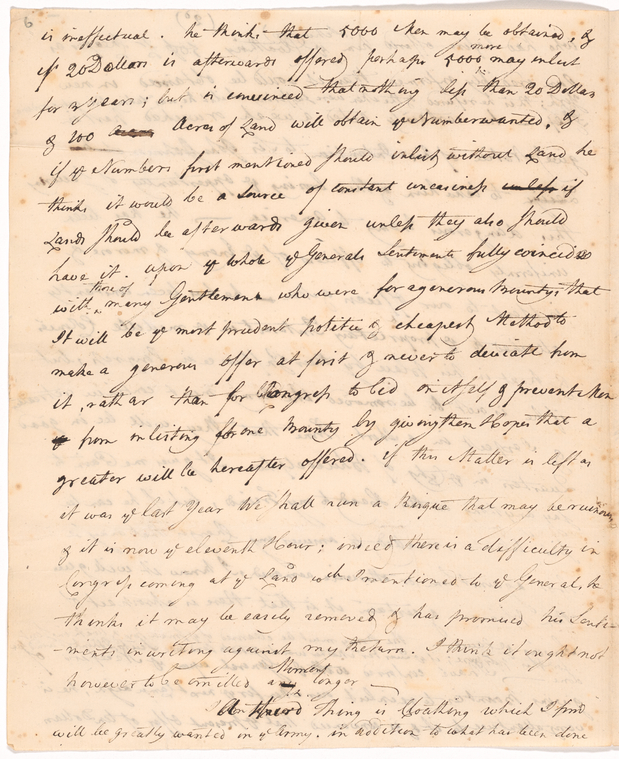 6
is ineffectual. he thinks that 5000 Men may be obtained, &
if 20 Dollars is afterwards offered perhaps 5000 more may inlist
for years; but is convinced that nothing less than 20 Dollars
& 100 Acres of Land will obtain ye Number wanted, &
if ye Numbers first mentioned should inlist without Land he
thinks it would be a source of constant uneasiness unless if
Lands should be afterwards given unless they also should
have it. upon ye whole ye Generals Sentiments fully coincide
with those of many Gentlemen who were for a generous Bounty & that
It will be ye most prudent politic & cheapest Method to
make a generous offer at first & never to deviate from
it, rathar than for Congress to bid on itself & prevent Men
from inlisting for one Bounty by giving them Hopes that a
greater will be hereafter offered. if this Matter is left as
it was ye last Year We shall run a Risque that may be ruinous
& it is now ye eleventh Hour; indeed there is a difficulty in
Congress coming at ye Land wch I mentioned to ye General, he
thinks it may be easily removed & has promised his Senti-
-ments in writing against my Return. I think it ought not
however to be omitted a Moment longer
Another Thing is Cloathing which I find
will be greatly wanted in ye Army. in addition to what has been done